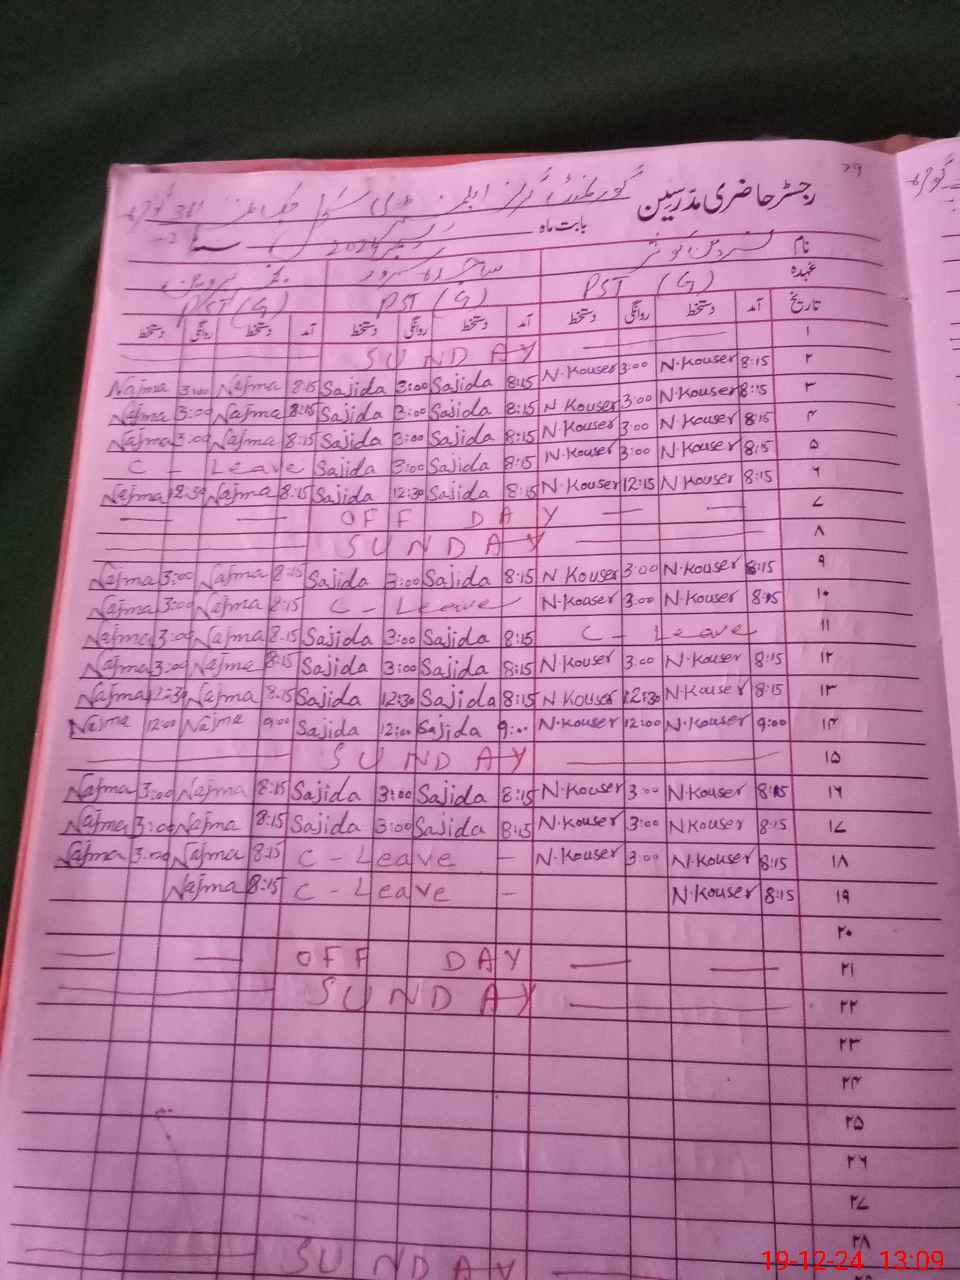 ۲۹
رجسٹر حاضری مدرسین گورنمنٹ گرلز
بابت ماہ دسمبر 2024 سنہ
نام
عہدہ PST (G) PST (G) PST (G)
تاریخ آمد دستخط روانگی دستخط آمد دستخط روانگی دستخط آمد دستخط روانگی دستخط
۱ SUNDAY
۲ 8:15 N.Kouser 3:00 N.Kouser 8:15 Sajida 3:00 Sajida 8:15 Najma 3:00 Najma
۳ 8:15 N.Kouser 3:00 N Kouser 8:15 Sajida 3:00 Sajida 8:15 Najma 3:00 Najma
۴ 8:15 N.Kouser 3:00 N.Kouser 8:15 Sajida 3:00 Sajida 8:15 Najma 3:00 Najma
۵ 8:15 N.Kouser 3:00 N.Kouser 8:15 Sajida 3:00 Sajida C - Leave
۶ 8:15 N.Kouser 12:15 N.Kouser 8:15 Sajida 12:30 Sajida 8:15 Najma 12:30 Najma
۷ OFF DAY
۸ SUNDAY
۹ 8:15 N.Kouser 3:00 N Kouser 8:15 Sajida 3:00 Sajida 8:15 Najma 3:00 Najma
۱۰ 8:15 N.Kouser 3:00 N.Kouser C - Leave 8:15 Najma 3:00 Najma
۱۱ C - Leave 8:15 Sajida 3:00 Sajida 8:15 Najma 3:00 Najma
۱۲ 8:15 N.Kouser 3:00 N.Kouser 8:15 Sajida 3:00 Sajida 8:15 Najma 3:00 Najma
۱۳ 8:15 N.Kouser 12:30 N Kouser 8:15 Sajida 12:30 Sajida 8:15 Najma 12:30 Najma
۱۴ 9:00 N.Kouser 12:00 N.Kouser 9:00 Sajida 12:00 Sajida 9:00 Najma 12:00 Najma
۱۵ SUNDAY
۱۶ 8:15 N.Kouser 3:00 N.Kouser 8:15 Sajida 3:00 Sajida 8:15 Najma 3:00 Najma
۱۷ 8:15 N Kouser 3:00 N.Kouser 8:15 Sajida 3:00 Sajida 8:15 Najma 3:00 Najma
۱۸ 8:15 N.Kouser 3:00 N.Kouser C - Leave - 8:15 Najma 3:00 Najma
۱۹ 8:15 N.Kouser C - Leave - 8:15 Najma
۲۰
۲۱ OFF DAY
۲۲ SUNDAY
۲۳
۲۴
۲۵
۲۶
۲۷
۲۸
SUNDAY
19-12-24 13:09